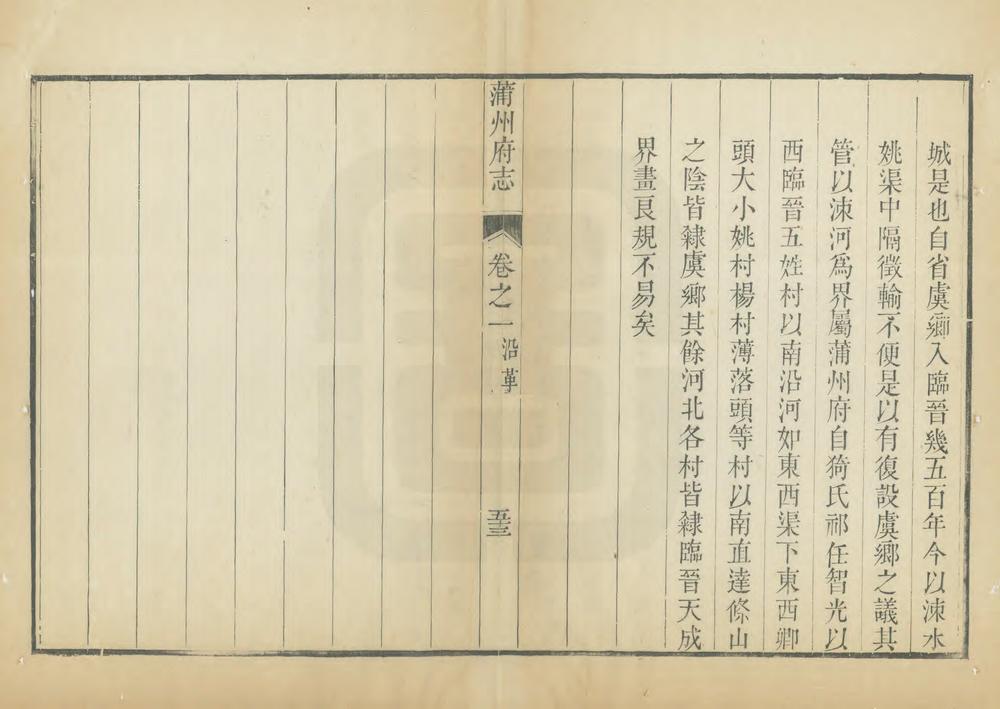 城是也自省虞鄉入臨晉幾五百年今以涑水
姚渠中隔徵輸不便是以有復設虞鄉之議其
管以涑河爲界屬蒲州府自猗氏祁任智光以
西臨晉五姓村以南沿河如東西渠下東西卿
頭大小姚村楊村薄落頭等村以南直達條山
之陰皆隸虞鄉其餘河北各村皆隸臨晉天成
界畫良規不易矣
蒲州府志
卷之一
沿革